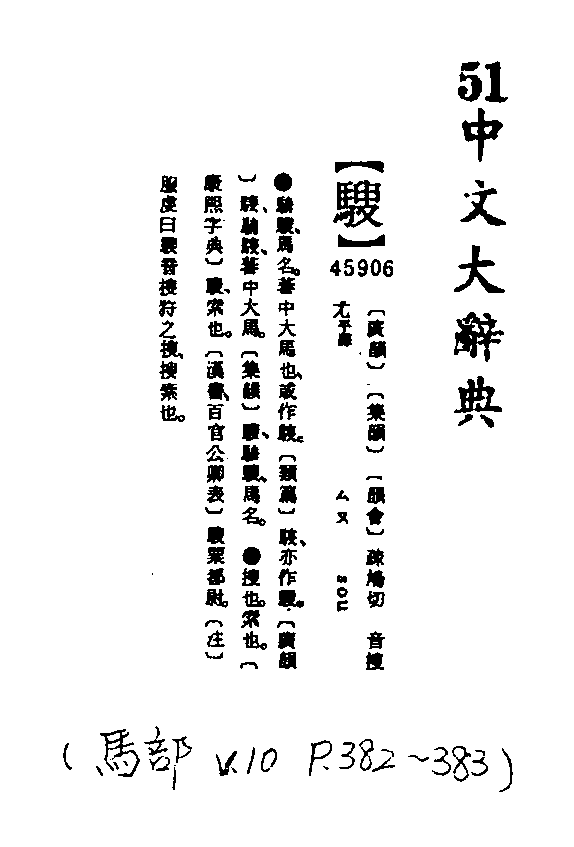 51中文大辭典
【騪】
45906
〔廣韻〕〔集韻〕〔韻會〕疎鳩切 音搜
尤平聲 ㄙㄡ sou
●騪、馬名。蕃中大馬也、或作
亦作騪。〔廣韻
蕃中大馬。〔集韻〕馬名。●搜也。索也。〔
康熙字典〕騪、索也。〔漢書、百官公卿表〕騪粟都尉。〔注〕
服虔曰騪音搜狩之搜、搜索也。
(馬部 V.10 P.382~383)